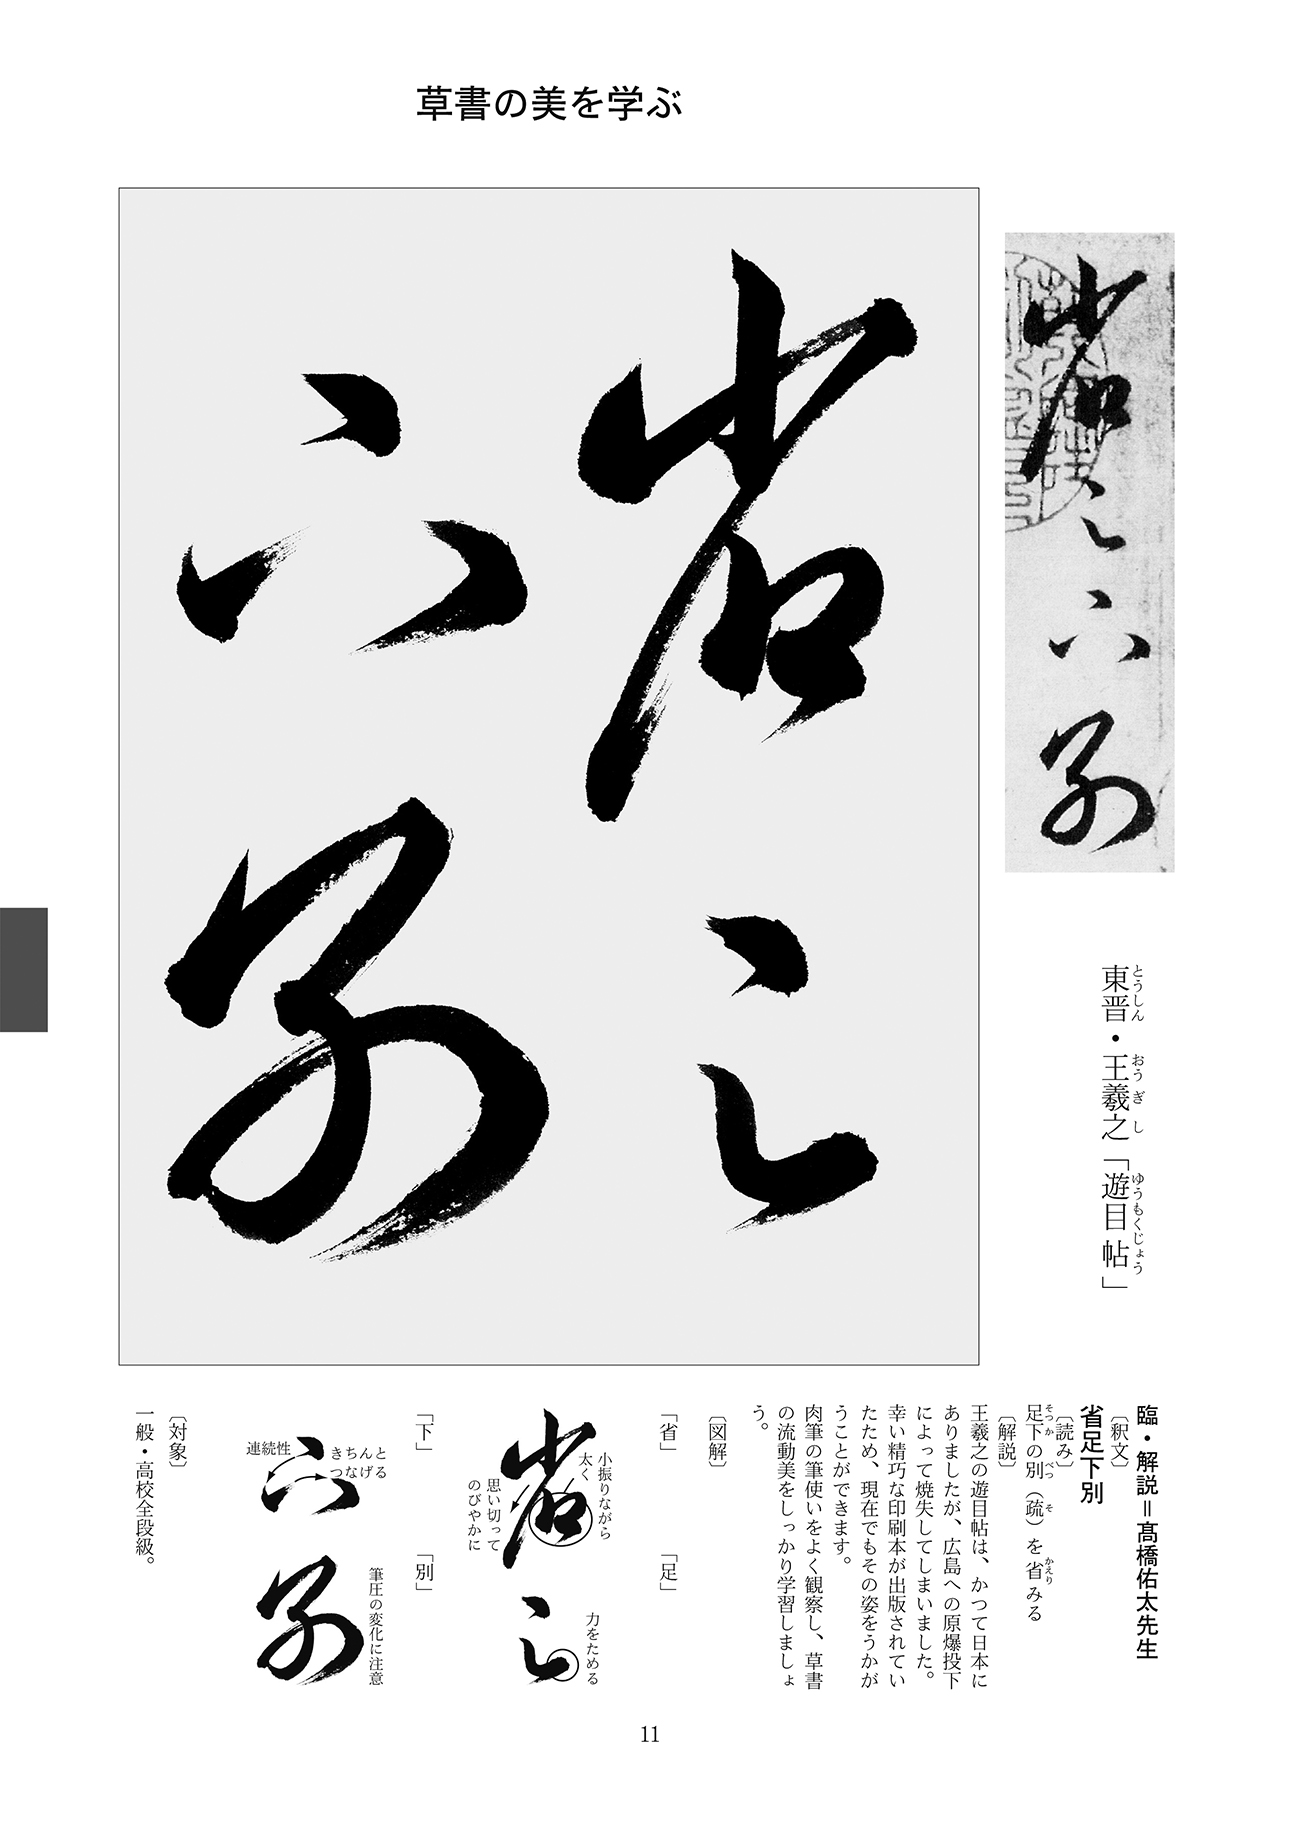 草書の美を学ぶ
省足
下別
省足下別
東晋・王羲之「遊目帖」
とうしん おうぎし ゆうもくじょう
臨・解説＝髙橋佑太先生
〔釈文〕
省足下別
〔読み〕
足下の別（疏）を省みる
そっか べっ そ かえり
〔解説〕
王羲之の遊目帖は、かつて日本に
ありましたが、広島への原爆投下
によって焼失してしまいました。
幸い精巧な印刷本が出版されてい
たため、現在でもその姿をうかが
うことができます。
肉筆の筆使いをよく観察し、草書
の流動美をしっかり学習しましょ
う。
〔図解〕
「省」
「足」
小振りながら
太く
思い切って
のびやかに
力をためる
省足
「下」
「別」
きちんと
つなげる
連続性
筆圧の変化に注意
下別
〔対象〕
一般・高校全段級。
11